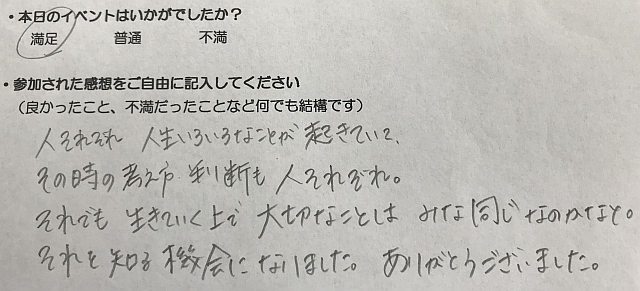 ・本日のイベントはいかがでしたか？
満足 普通 不満
・参加された感想をご自由に記入してください
（良かったこと、不満だったことなど何でも結構です）
人それぞれ 人生いろいろなことが 起きていて、
その時の考え方・判断も 人それぞれ。
それでも 生きていく上で 大切なことは みな同じなのかなと。
それを知る機会になりました。 ありがとうございました。